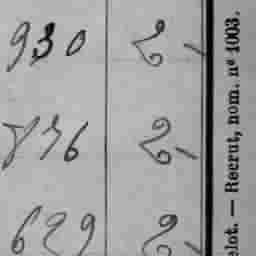 930 2-
876 2-
629 2-
elot. — Recrut, nom. nº 1003.